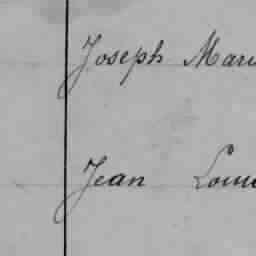 Joseph Mari
Jean Loui